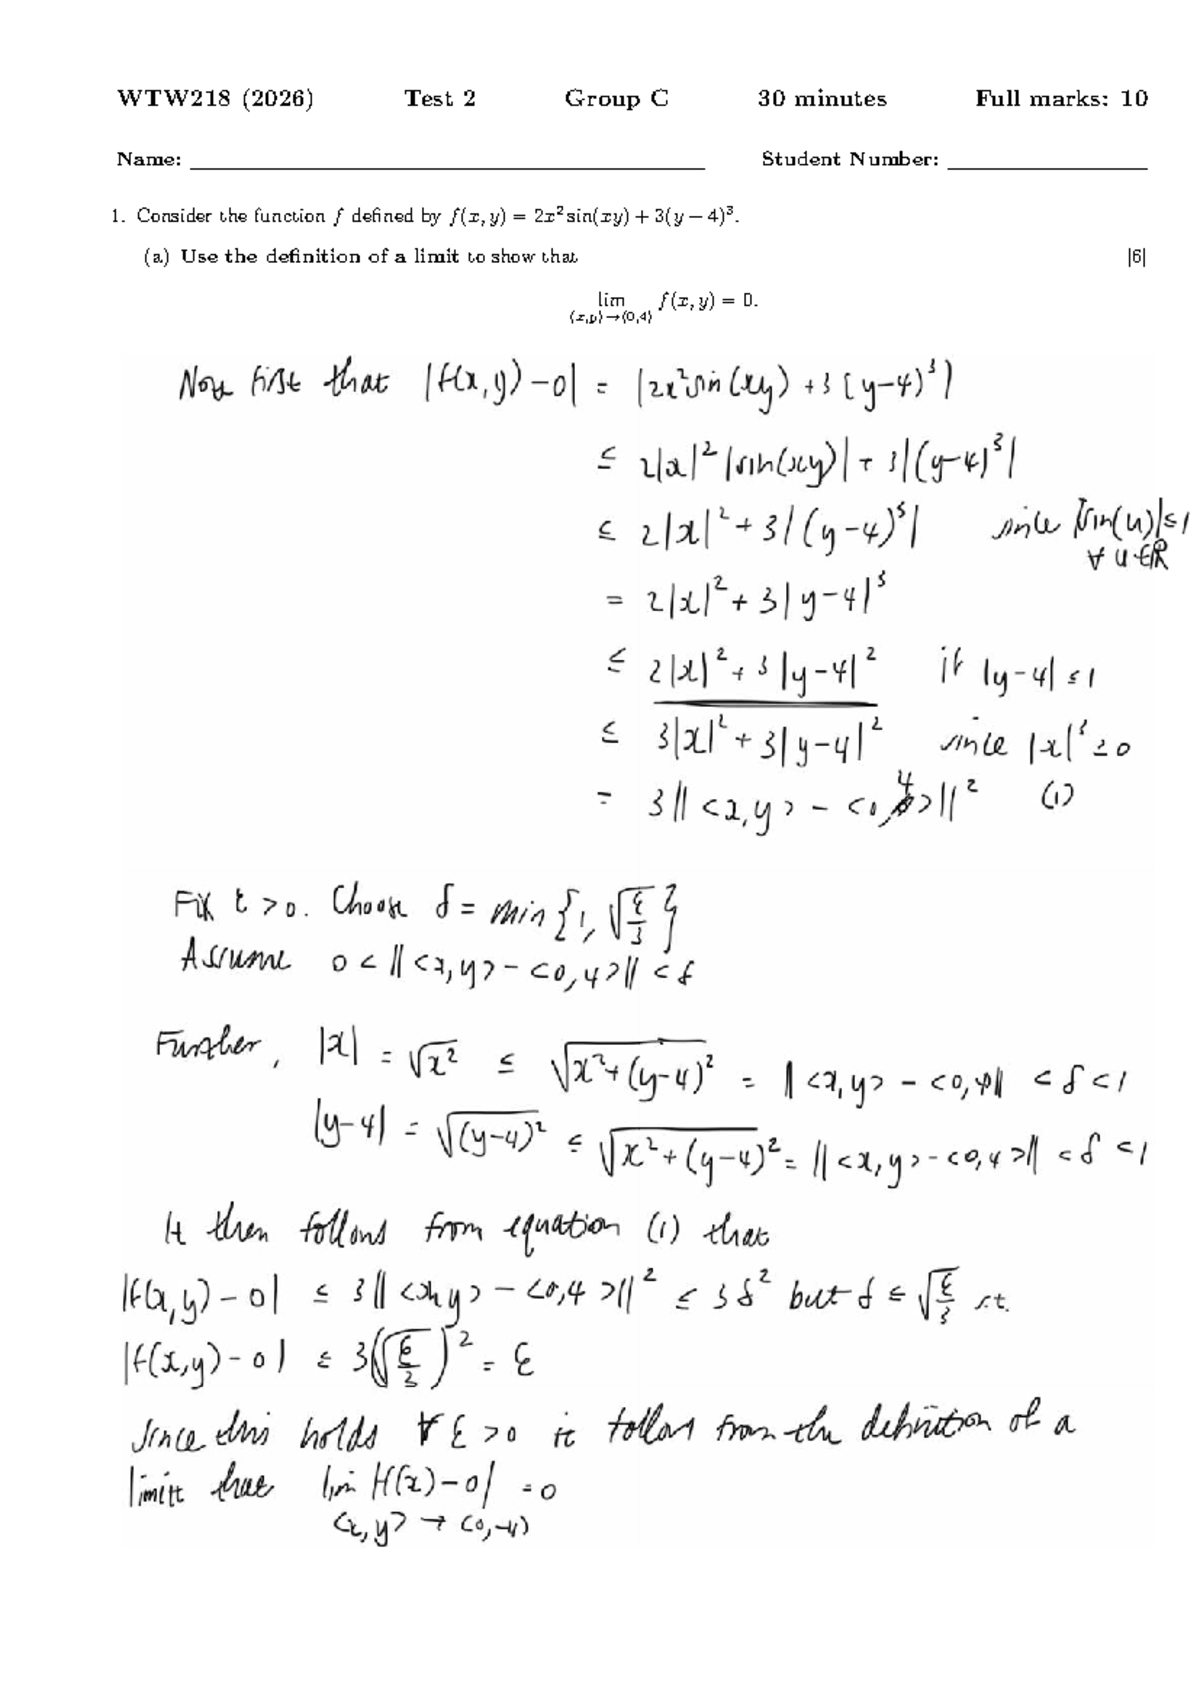 WTW218 (2026) Test 2 Group C 30 minutes Full marks: 10
Name: Student Number:
1. Consider the function f defined by f(x, y) = 2x² sin(xy) + 3(y − 4)³.
(a) Use the definition of a limit to show that [6]
lim f(x, y) = 0.
(x,y)→(0,4)
Now first that |f(x,y) − 0| = |2x² sin(xy) + 3(y−4)³|
≤ 2|x|² |sin(xy)| + 3|(y−4)³|
≤ 2|x|² + 3|(y−4)³| since |sin(u)| ≤ 1
∀ u ∈ ℝ
= 2|x|² + 3|y−4|³
≤ 2|x|² + 3|y−4|² if |y−4| ≤ 1
≤ 3|x|² + 3|y−4|² since |x|² ≥ 0
= 3||<x,y> − <0,4>||² (1)
Fix ε > 0. Choose δ = min{1, √(ε/3)}
Assume 0 < ||<x,y> − <0,4>|| < δ
Further, |x| = √x² ≤ √(x²+(y−4)²) = ||<x,y> − <0,4>|| < δ < 1
|y−4| = √(y−4)² ≤ √(x²+(y−4)²) = ||<x,y> − <0,4>|| < δ < 1
It then follows from equation (1) that
|f(x,y) − 0| ≤ 3||<x,y> − <0,4>||² ≤ 3δ² but δ ≤ √(ε/3) s.t.
|f(x,y) − 0| ≤ 3(√(ε/3))² = ε
Since this holds ∀ ε > 0 it follows from the definition of a
limitt that lim |f(x) − 0| = 0
<x,y> → <0,4>